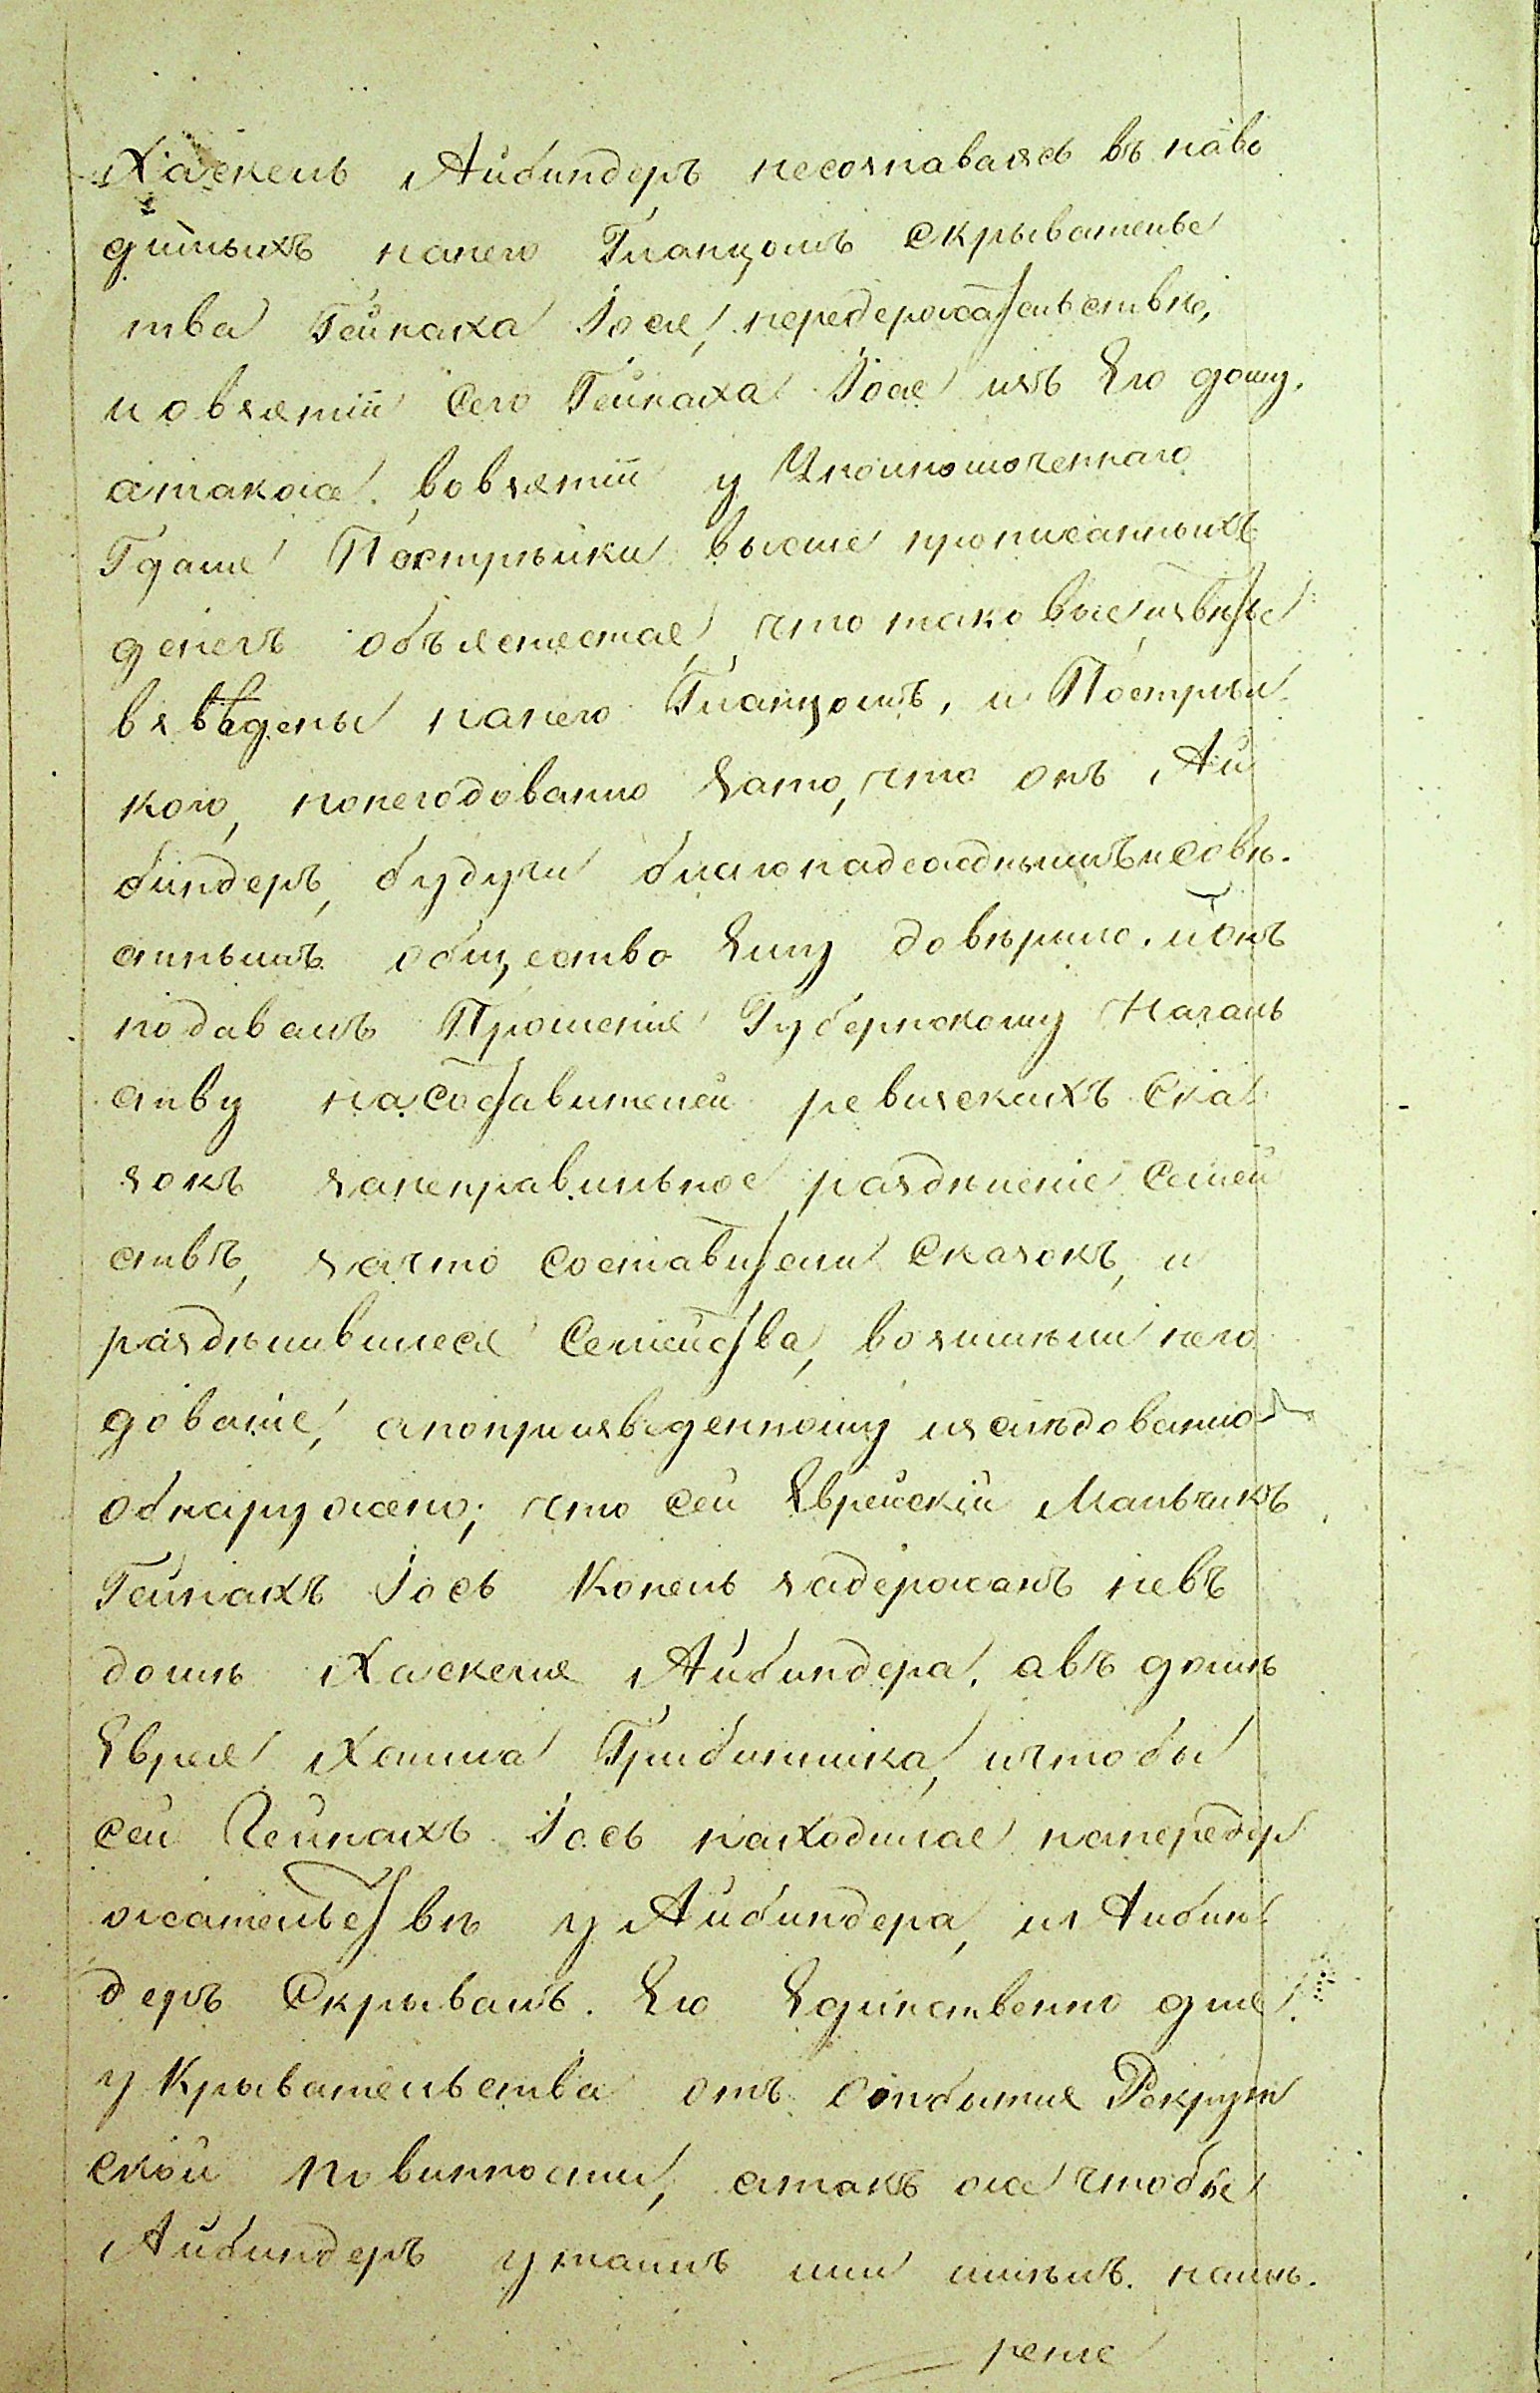 Хаскель Айбиндеръ несознаваясь въ наво
димыхъ нанего Гланцомъ скрывательс
тва Гейнаха Іося, передержательствѣ,
и овзятіи сего Гейнаха Іося изъ Его дому,
атакже вовзятіи у Уполномоченнаго
Гдаля Пострыйки выше прописанныхъ
денегъ объясняетъ, что таковые извѣты
взвѣдены нанего Гланцомъ, и Пострый
кою, понегодованію зато, что онъ Ай
биндеръ, будучи благонадежднымъ исовѣ.
стнымъ общество Ему довѣрило. и онъ
подавалъ Прошеніе Губернскому Началь
ству насоставителей ревизскихъ Ска
зокъ занеправильное раздѣленіе Семей
ствъ, зачто составители Сказокъ, и
раздѣлившіеся Семейства, возимѣли него
дованіе, апопроизведенному изслѣдованію
обнаружено; что сей Еврейскій Мальчикъ
Гейнахъ Іось Копель задержанъ невъ
домѣ Хаскеля Айбиндера, авъ домѣ
Еврея Хаима Грибинника, ичтобы
сей Гейнахъ Іось находился напередер
жательствѣ у Айбиндера, и Айбин
деръ Скрывалъ Его Единственно для
укрывательства отъ отбытія Рекрут
ской повинности, атакъ же чтобы
Айбиндеръ утаилъ или имѣлъ намѣ.
реніе